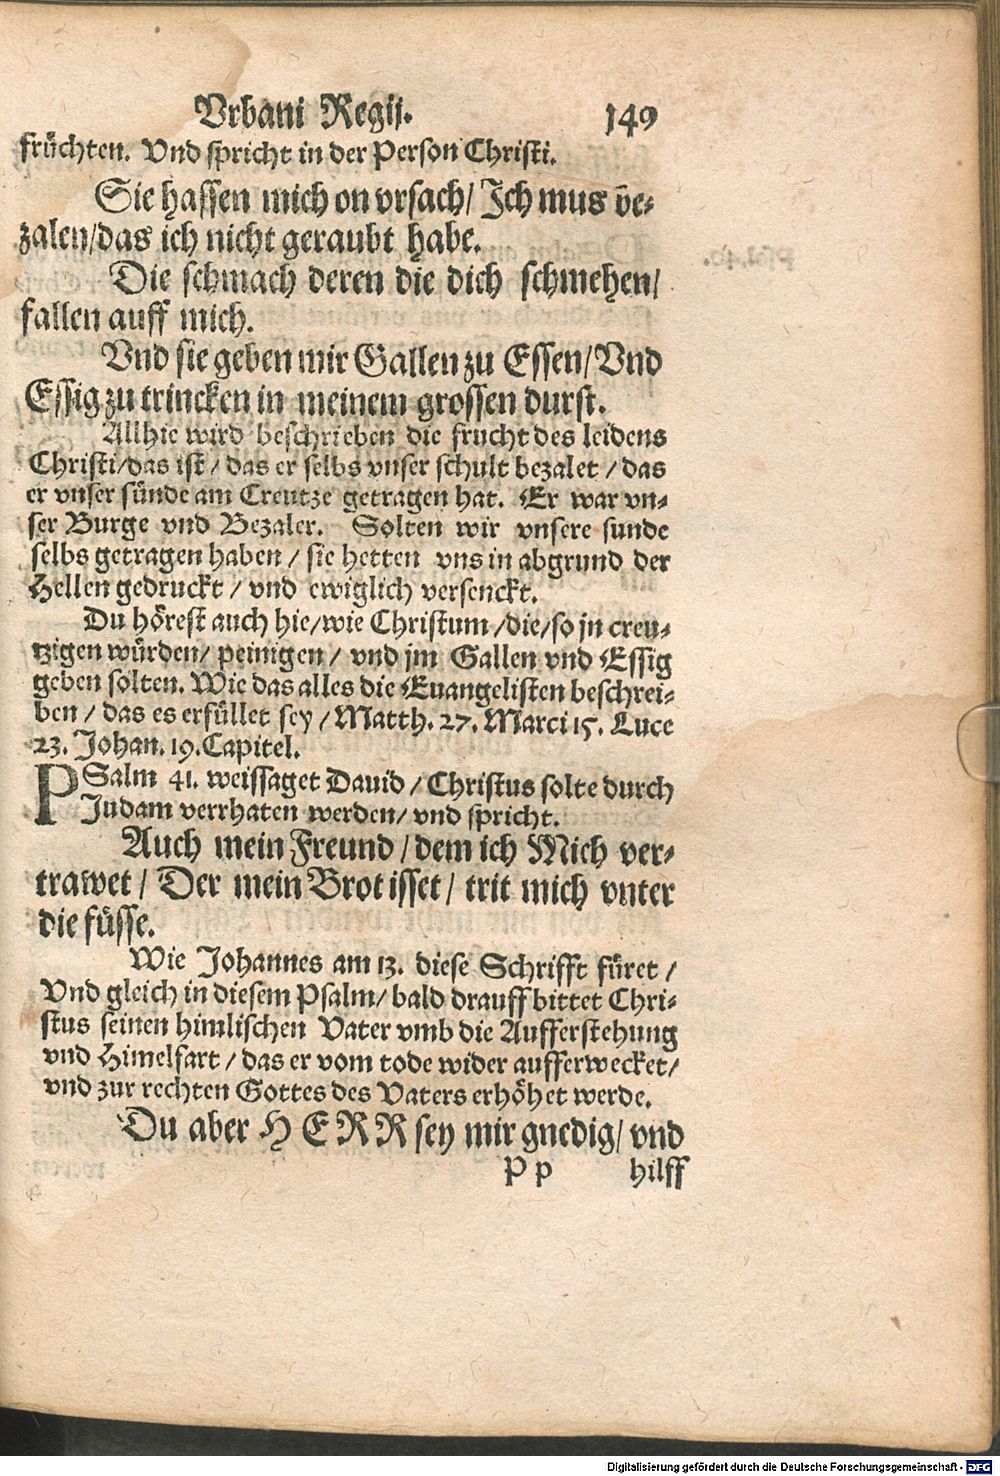 Vrbani Regij. 149
früchten. Vnd spricht in der Person Christi.
Sie hassen mich on vrsach/ Ich mus be-
zalen/das ich nicht geraubt habe.
Die schmach deren die dich schmehen/
fallen auff mich.
Vnd sie geben mir Gallen zu Essen/Vnd
Essig zu trincken in meinem grossen durst.
Allhie wird beschrieben die frucht des leidens
Christi/das ist/ das er selbs vnser schult bezalet / das
er vnser sünde am Creutze getragen hat. Er war vn-
ser Burge vnd Bezaler. Solten wir vnsere sunde
selbs getragen haben / sie hetten vns in abgrund der
Hellen gedruckt / vnd ewiglich versenckt.
Du hörest auch hie/wie Christum /die/so jn creu-
tzigen würden/ peinigen / vnd jm Gallen vnd Essig
geben solten. Wie das alles die Euangelisten beschrei-
ben / das es erfüllet sey / Matth. 27. Marci 15. Luce
23. Johan. 19. Capitel.
PSalm 41. weissaget Dauid / Christus solte durch
Judam verrhaten werden/ vnd spricht.
Auch mein Freund / dem ich Mich ver-
trawet / Der mein Brot isset / trit mich vnter
die füsse.
Wie Johannes am 13. diese Schrifft füret /
Vnd gleich in diesem Psalm/ bald drauff bittet Chri-
stus seinen himlischen Vater vmb die Aufferstehung
vnd Himelfart / das er vom tode wider aufferwecket/
vnd zur rechten Gottes des Vaters erhöhet werde.
Du aber HERR sey mir gnedig/ vnd
P p hilff
Digitalisierung gefördert durch die Deutsche Forschungsgemeinschaft - DFG